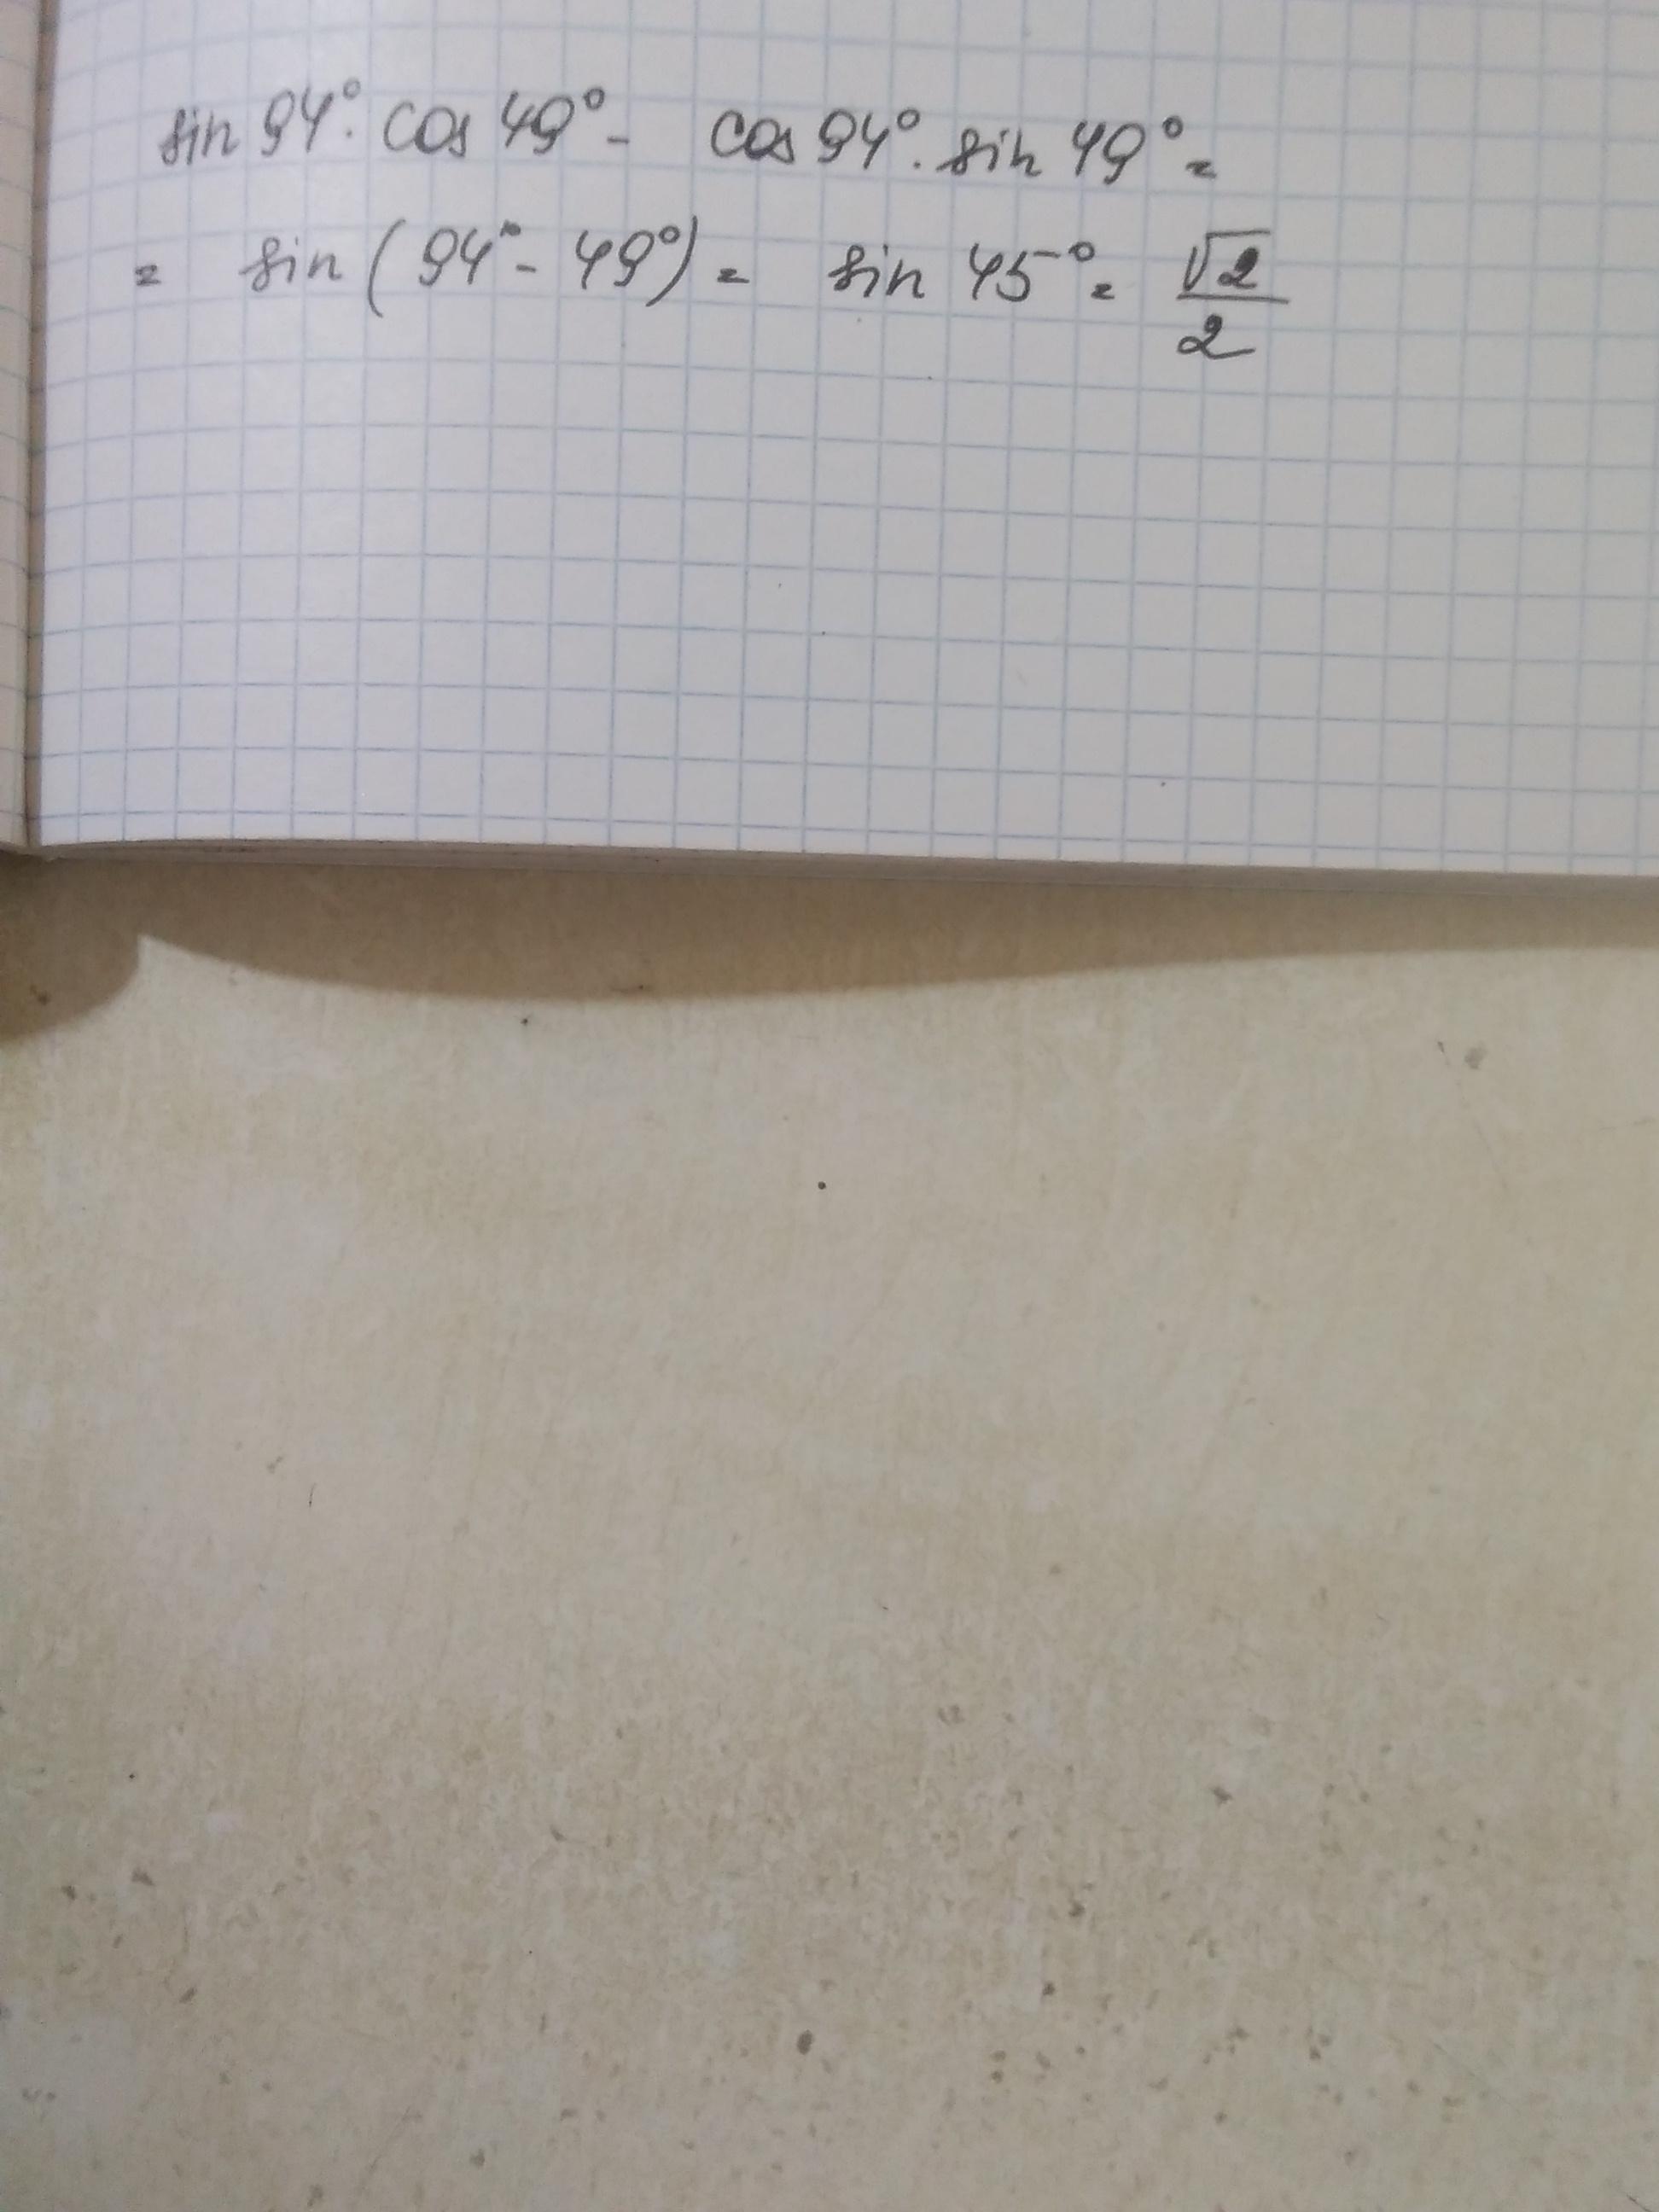 sin 94° · cos 49° - cos 94° · sin 49° =
= sin (94° - 49°) = sin 45° = √2/2